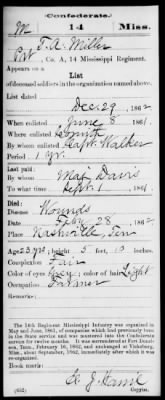 Confederate.
M 14 Miss.
F. A. Miller
Pvt, Co. A, 14 Mississippi Regiment.
Appears on a
List
of deceased soldiers in the organization named above.
List dated
Dec 29, 1862
When enlisted June 8, 1861.
Where enlisted
By whom enlisted Capt. Walker
Period 1 yr.
Last paid:
By whom Maj. Davis
To what time Sept 1, 1861.
Died:
Disease Wounds
Date Feby 28, 1862
Place Nashville, Ten
Age 23 yrs; height 5 feet, 10 inches.
Complexion Fair
Color of eyes Grey; color of hair Light
Occupation Farmer
Remarks:
The 14th Regiment Mississippi Infantry was organized in
May and June, 1861, of companies which had previously been
in the State service and was mustered into the Confederate
service for twelve months. It was surrendered at Fort Donel-
son, Tenn., February 16, 1862, and exchanged at Vicksburg,
Miss., about September, 1862, after which it was re-
organized.
Book mark:
(652)
Copyist.